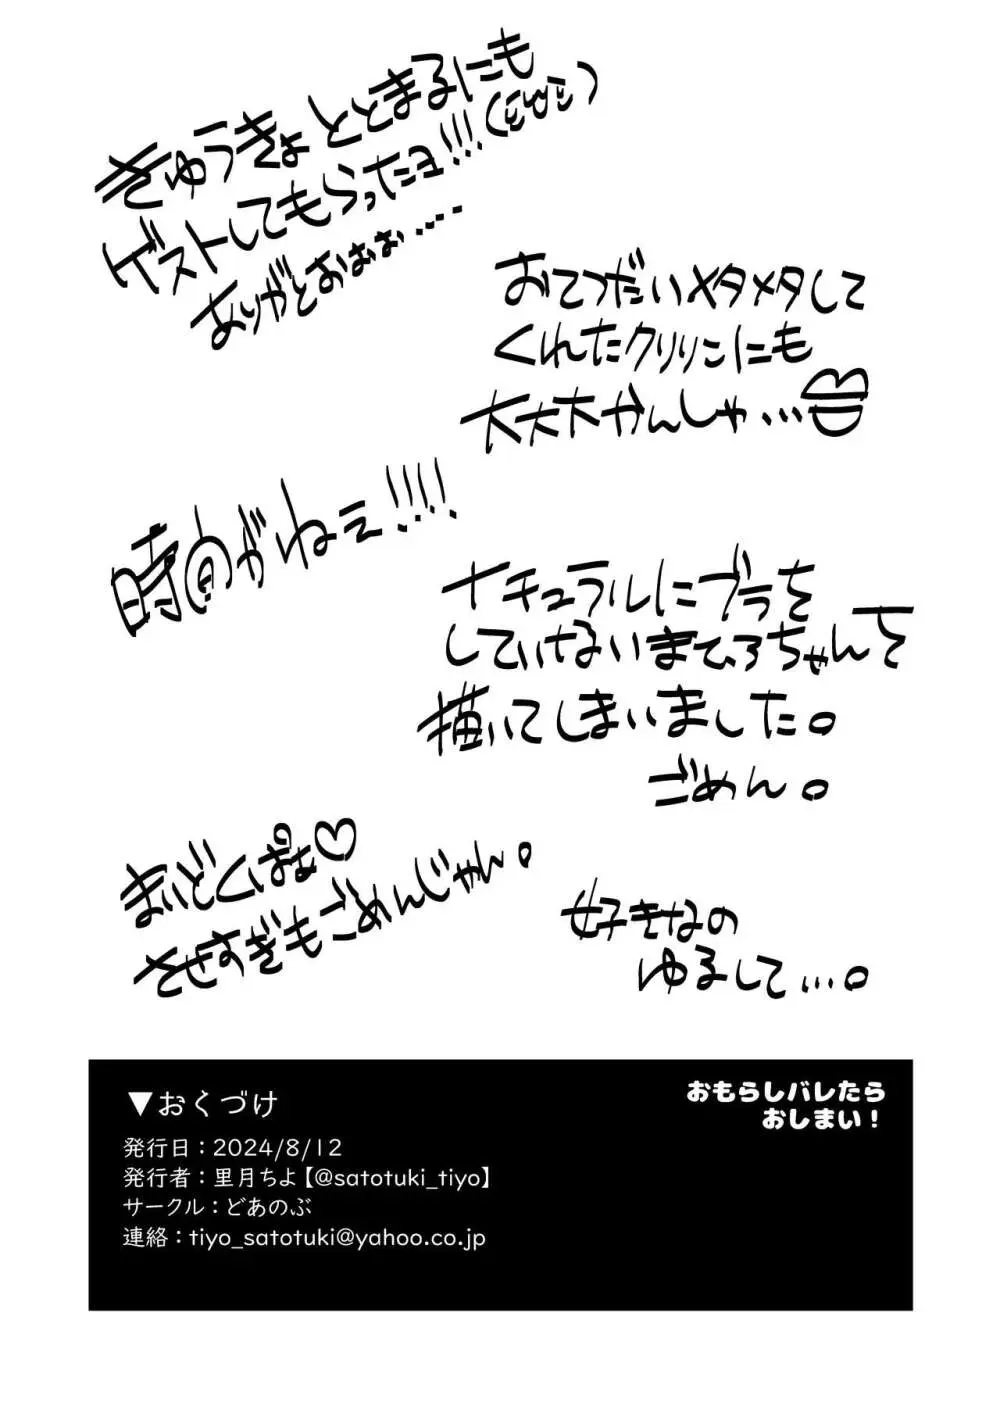 きゅうきょ ととまるにも
ゲストしてもらったヨ!!!(EωE)
ありがとおぉぉ....
おてつだいメタメタして
くれたクリリンにも
大大大かんしゃ...
時間がねェ!!!!
ナチュラルにブラを
していないまひろちゃんを
描いてしまいました。
ごめん。
まいどくぱぁ♡
させすぎもごめんじゃん。
好きなの
ゆるして...。
▼おくづけ
おもらしバレたら
おしまい!
発行日:2024/8/12
発行者:里月ちよ【@satotuki_tiyo】
サークル:どあのぶ
連絡:tiyo_satotuki@yahoo.co.jp